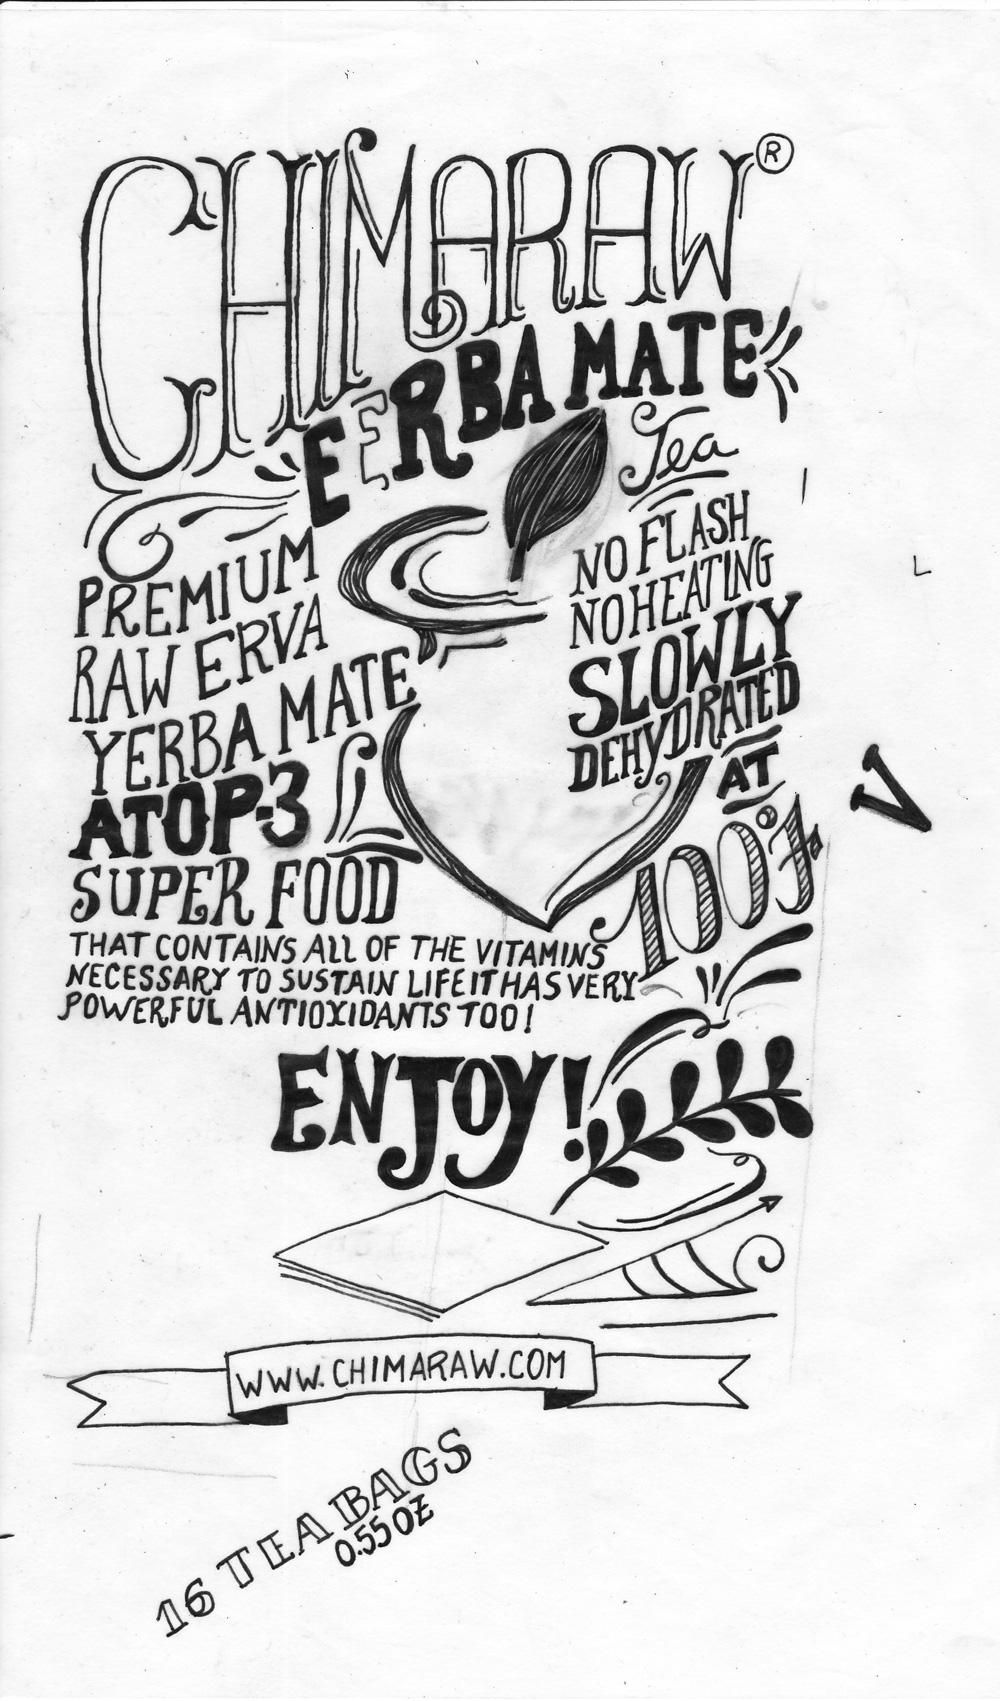 CHIMARAW ®
EERBA MATE
Tea
PREMIUM
RAW ERVA
YERBA MATE
ATOP-3
SUPER FOOD
THAT CONTAINS ALL OF THE VITAMINS
NECESSARY TO SUSTAIN LIFE IT HAS VERY
POWERFUL ANTIOXIDANTS TOO!
NO FLASH
NO HEATING
SLOWLY
DEHYDRATED
AT
V
ENJOY!
WWW.CHIMARAW.COM
16 TEA BAGS
0.55 OZ